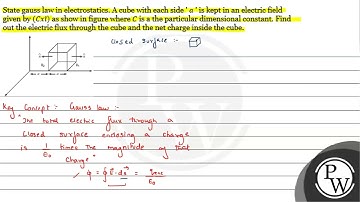 State gauss law in electrostatics. A cube with each side ' a ' is kept in an electric field
given by (CxI) as show in figure where C is a the particular dimensional constant. Find
out the electric flux through the cube and the net charge inside the cube.
closed surface :-
Key Concept :- Gauss law :-
"The total electric flux through a
closed surface enclosing a charge
is 1/ε₀ times the magnitude of that
charge"
φ = ∮ E⃗·ds⃗ = qenc/ε₀
P
W